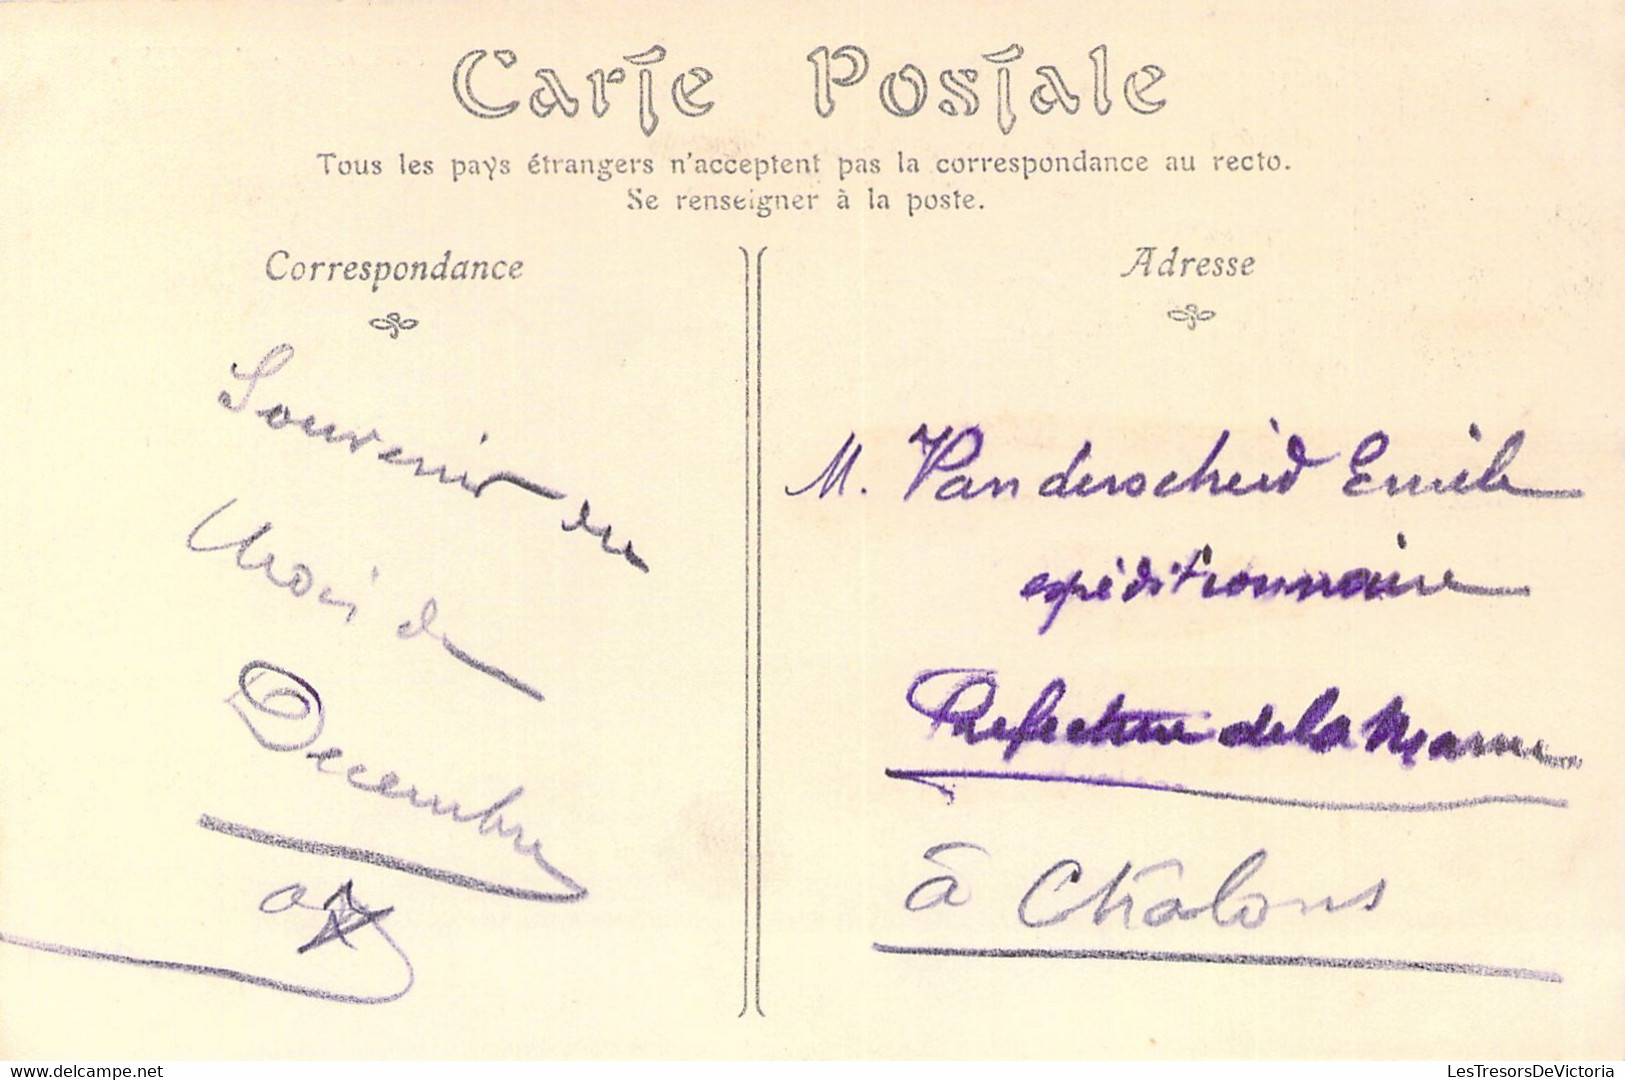 Carte Postale
Tous les pays étrangers n'acceptent pas la correspondance au recto.
Se renseigner à la poste.
Correspondance
Souvenir du
Mois de
Decembre
07
Adresse
M. Vanderscheid Emile
expéditionnaire
Préfecture de la Marne
à Châlons
Delcampe.net
LesTresorsDeVictoria